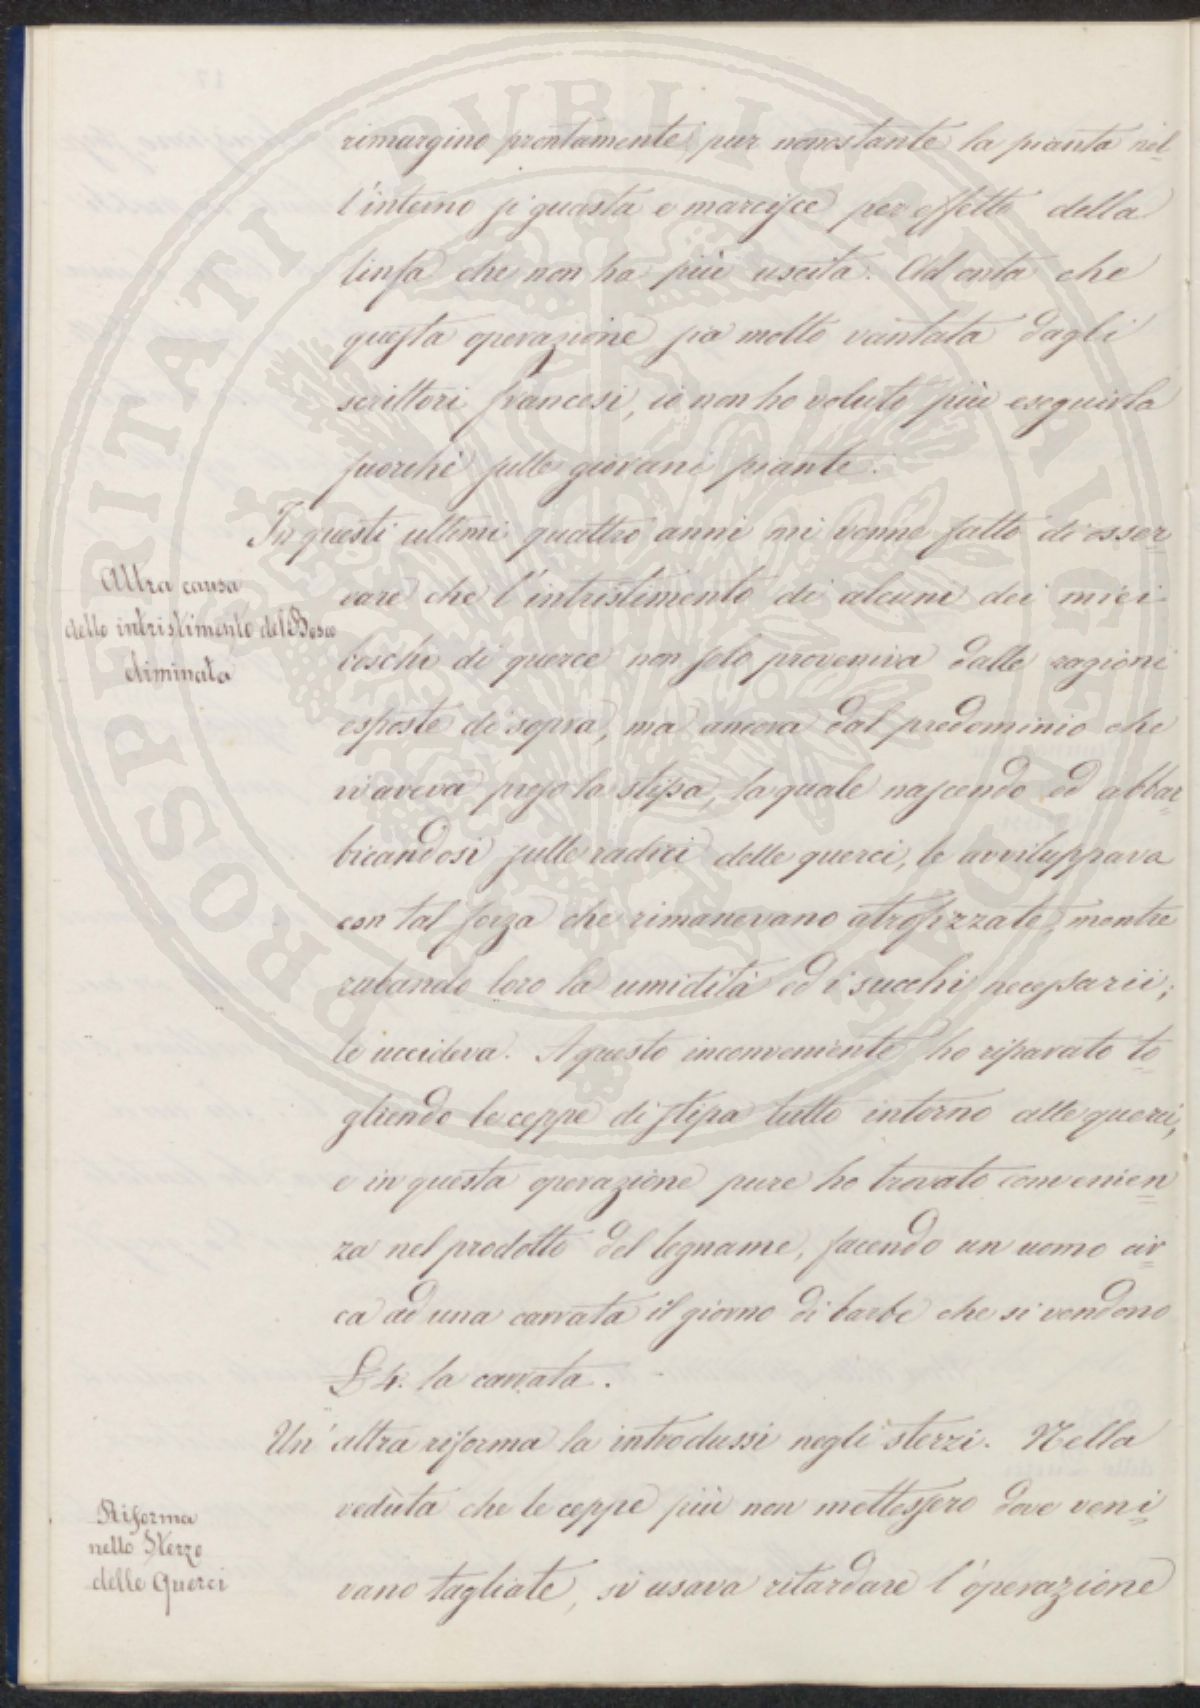 rimargino prontamente pur nonostante la pianta nel
l'interno si guasta e marcisce per effetto della
linfa che non ha più uscita. Ad onta che
questa operazione sia molto vantata dagli
scrittori francesi, io non ho voluto più eseguirla
fuorchè sulle giovani piante.
In questi ultimi quattro anni mi venne fatto di osser
Altra causa
dello intristimento del Bosco
eliminata
vare che l'intristimento di alcuni dei miei
boschi di querce non solo proveniva dalle ragioni
esposte di sopra, ma ancora dal predominio che
vi aveva preso la stipa, la quale nascendo ed abbar
bicandosi sulle radici delle querci, le avviluppava
con tal forza che rimanevano atrofizzate, mentre
rubando loro la umidità ed i succhi necessarii,
le uccideva. A questo inconveniente ho riparato to
gliendo le ceppe di stipa tutto intorno alle querci,
e in questa operazione pure ho trovato convenien
za nel prodotto del legname, facendo un uomo cir
ca ad una carrata il giorno di barbe che si vendono
£ 4. la carrata.
Un' altra riforma la introdussi negli sterzi. Nella
Riforma
nello Sterzo
delle Querci
veduta che le ceppe più non mettessero dove veni
vano tagliate, si usava ritardare l'operazione
PROSPERITATI PUBLICAE AUGENDAE